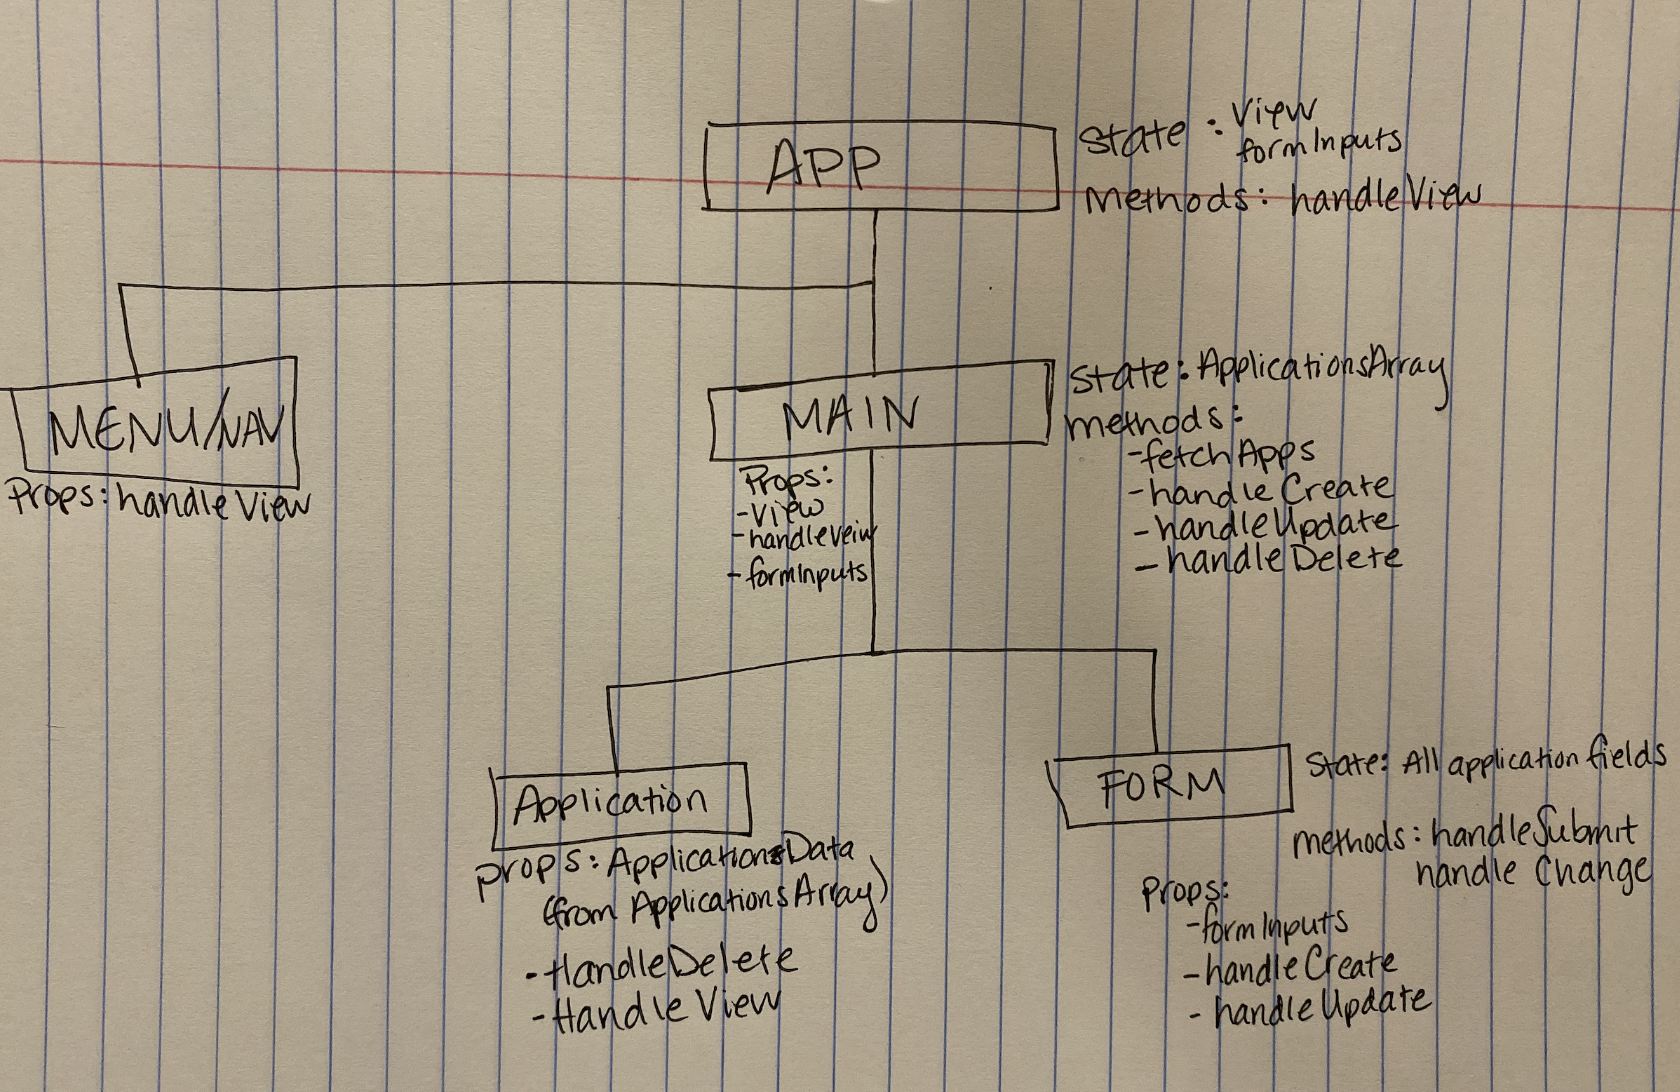 APP
State : View
formInputs
Methods: handleView
MENU/NAV
Props: handleView
MAIN
State: ApplicationsArray
methods:
-fetchApps
-handleCreate
-handleUpdate
-handleDelete
Props:
-View
-handleVeiw
-formInputs
Application
props: ApplicationsData
(from ApplicationsArray)
-HandleDelete
-HandleView
FORM
State: All application fields
methods: handleSubmit
handle Change
Props:
-formInputs
-handleCreate
-handleUpdate